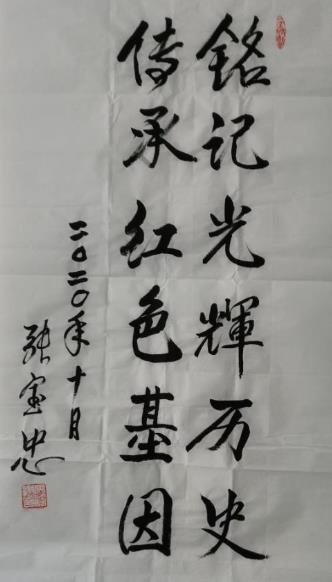 銘记光輝历史
传承红色基因
二〇二〇年十月
张宝忠